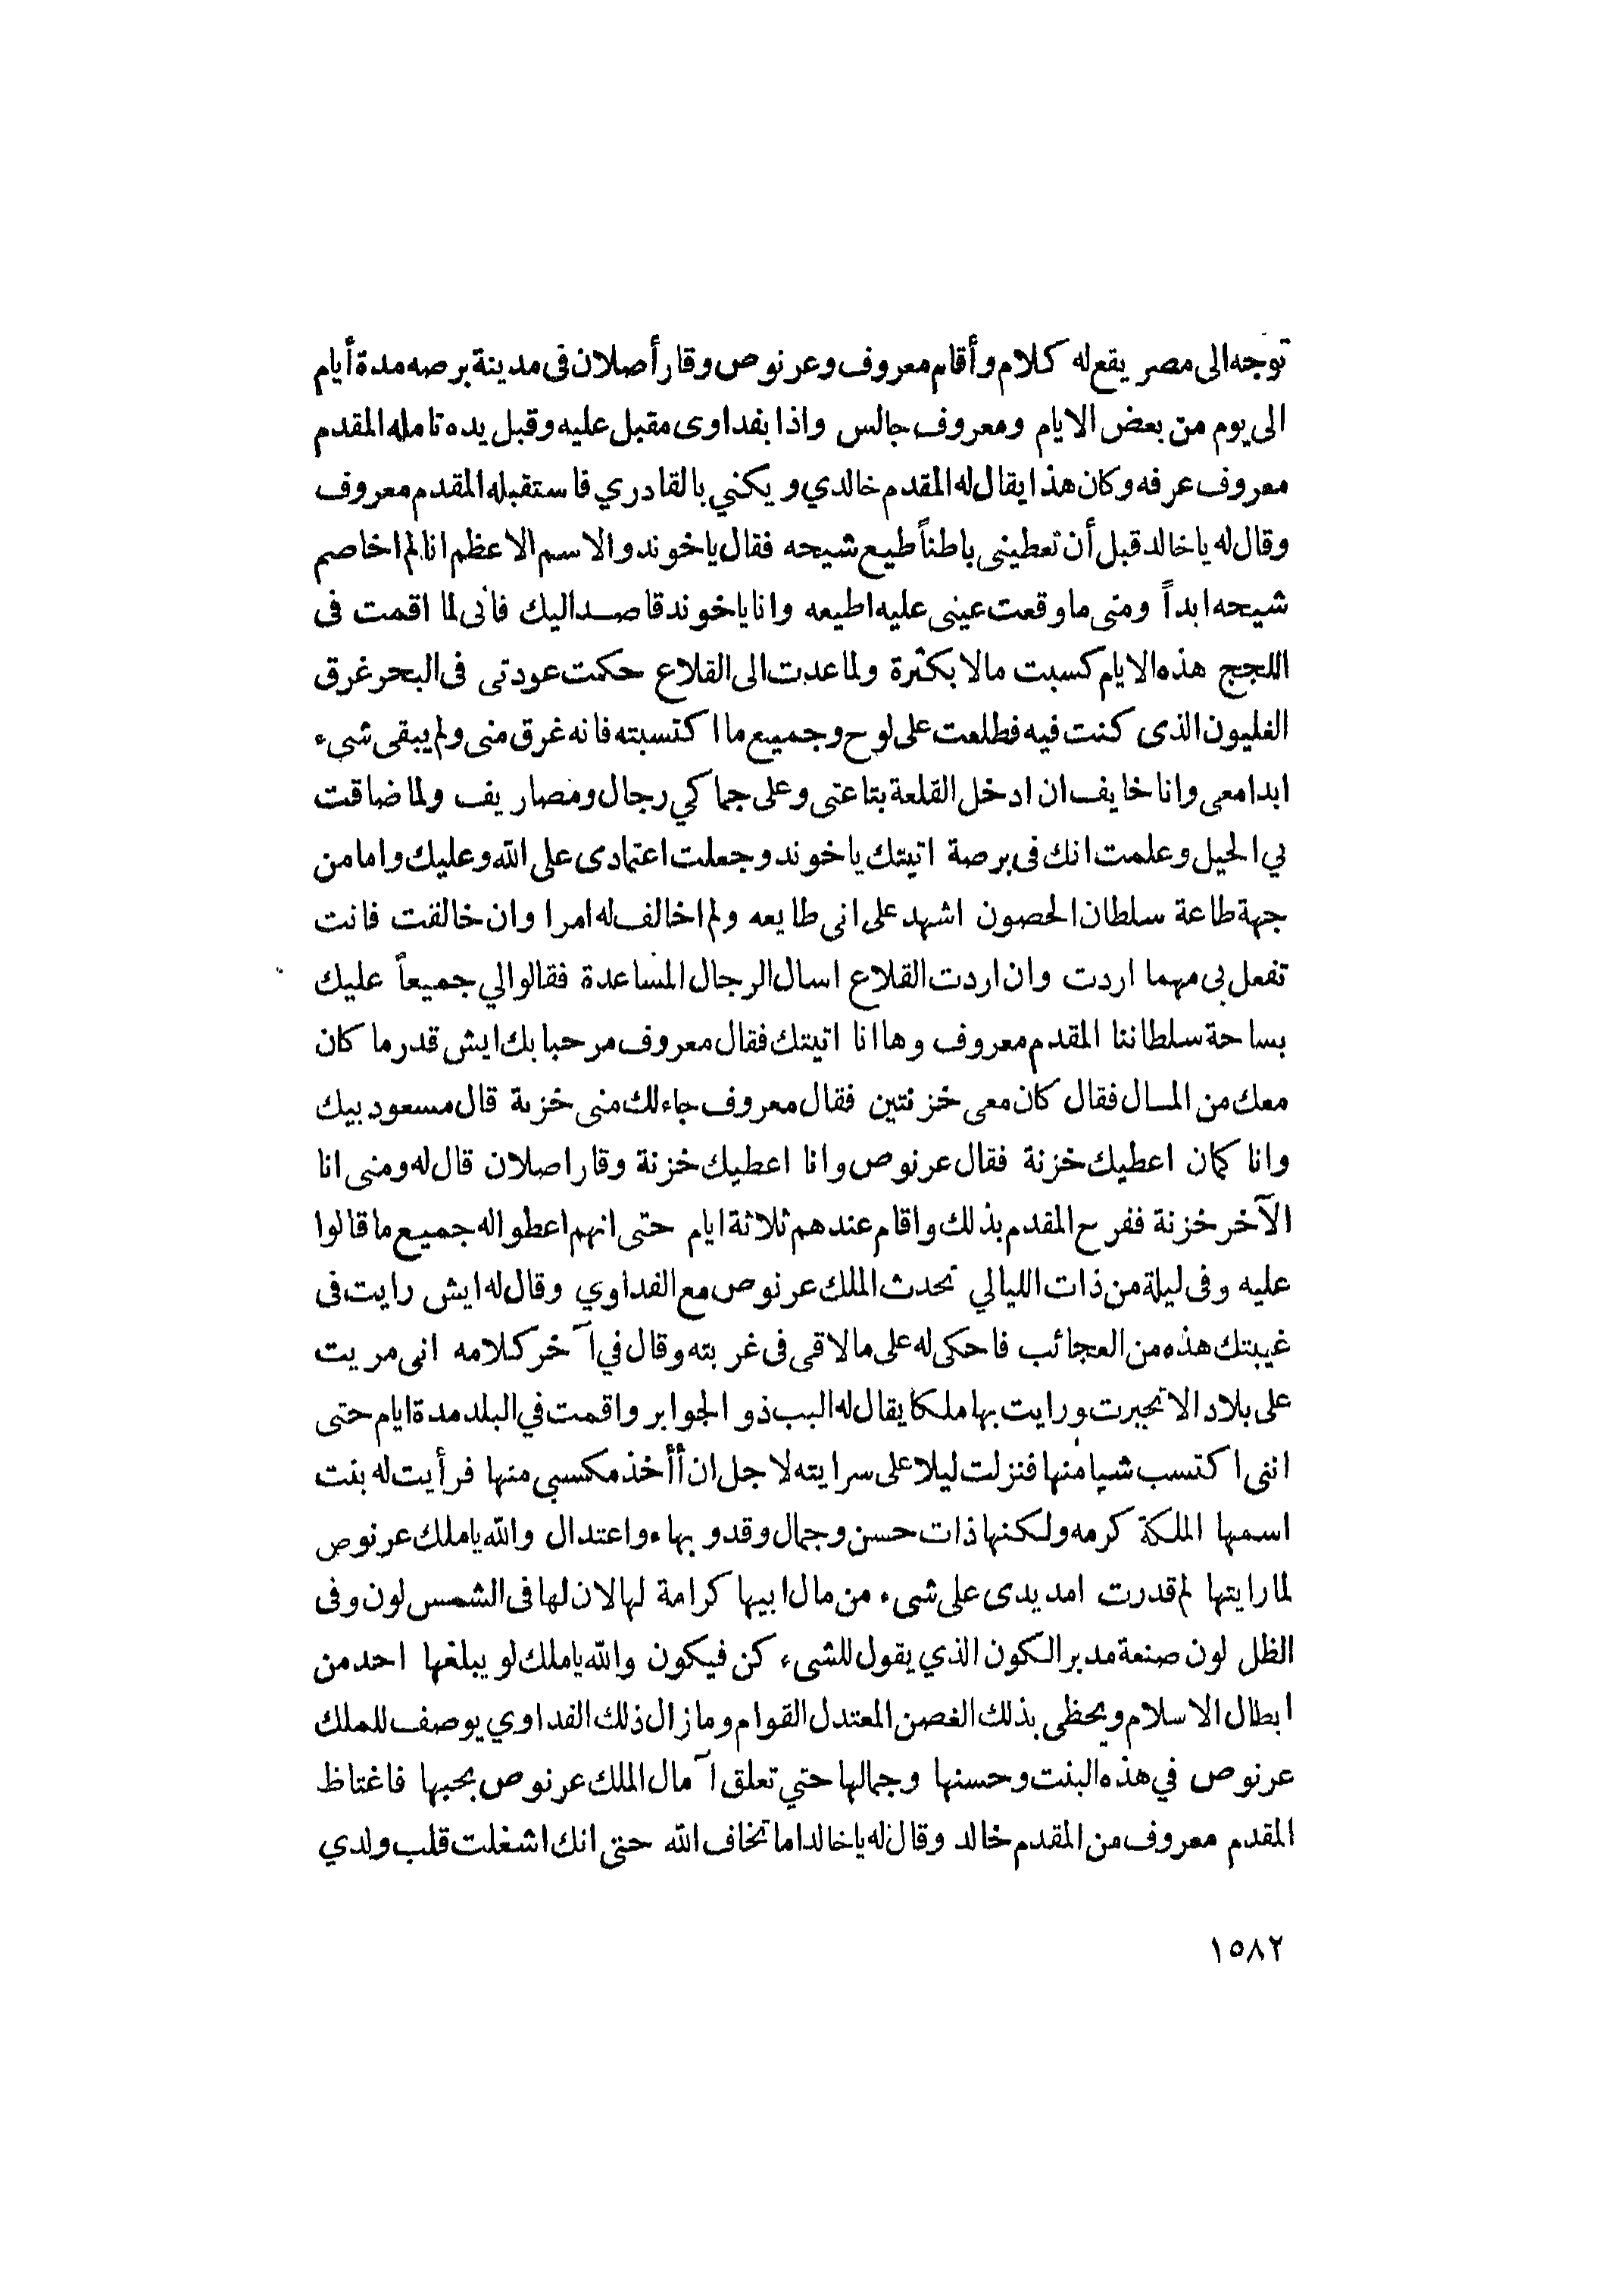 توجه الى مصر يقع له كلام وأقام معروف وعرنوص وقار أصلان فى مدينة برصه مدة أيام
الى يوم من بعض الايام ومعروف جالس واذا بفداوى مقبل عليه وقبل يده تامله المقدم
معروف عرفه وكان هذا يقال له المقدم خالدي ويكني بالقادري فاستقبله المقدم معروف
وقال له ياخالد قبل أن تعطينى باطناً طيع شيحه فقال ياخوند والاسم الاعظم انا لم اخاصم
شيحه ابداً ومنى ما وقعت عينى عليه اطيعه وانا ياخوند قاصد اليك فانى لما اقمت فى
اللجج هذه الايام كسبت مالا بكثرة ولما عدت الى القلاع حكمت عودتى فى البحر غرق
الغليون الذى كنت فيه فطلعت على لوح وجميع ما اكتسبته فانه غرق منى ولم يبقى شىء
ابدا معى وانا خايف ان ادخل القلعة بتاعتى وعلى جماكي رجال ومصاريف ولما ضاقت
بي الحيل وعلمت انك فى برصة اتيتك ياخوند وجعلت اعتمادى على الله وعليك واما من
جهة طاعة سلطان الحصون اشهد على انى طايعه ولم اخالف له امرا وان خالفت فانت
تفعل بى مهما اردت وان اردت القلاع اسال الرجال المساعدة فقالوا لي جميعاً عليك
بساحة سلطاننا المقدم معروف وها انا اتيتك فقال معروف مرحبا بك ايش قدر ما كان
معك من المال فقال كان معى خزنتين فقال معروف جاءلك منى خزنة قال مسعود بيك
وانا كمان اعطيك خزنة فقال عرنوص وانا اعطيك خزنة وقار اصلان قال له ومنى انا
الآخر خزنة ففرح المقدم بذلك واقام عندهم ثلاثة ايام حتى انهم اعطوا له جميع ما قالوا
عليه وفى ليلة من ذات الليالي تحدث الملك عرنوص مع الفداوي وقال له ايش رايت فى
غيبتك هذه من العجائب فاحكى له على ما لاقى فى غربته وقال في آخر كلامه انى مريت
على بلاد الانجبرت ورايت بها ملكا يقال له البب ذو الجوابر واقمت في البلد مدة ايام حتى
اننى اكتسب شيا منها فنزلت ليلا على سرايته لاجل ان أأخذ مكسبي منها فرأيت له بنت
اسمها الملكة كرمه ولكنها ذات حسن وجمال وقد وبهاء واعتدال والله ياملك عرنوص
لما رايتها لم قدرت امد يدى على شىء من مال ابيها كرامة لها لان لها فى الشمس لون وفى
الظل لون صنعة مدبر الكون الذي يقول للشىء كن فيكون والله ياملك لو يبلغها احد من
ابطال الاسلام ويحظى بذلك الغصن المعتدل القوام وما زال ذلك الفداوي يوصف للملك
عرنوص في هذه البنت وحسنها وجمالها حتي تعلق آمال الملك عرنوص بحبها فاغتاظ
المقدم معروف من المقدم خالد وقال له ياخالد اما تخاف الله حتى انك اشغلت قلب ولدي
١٥٨٢